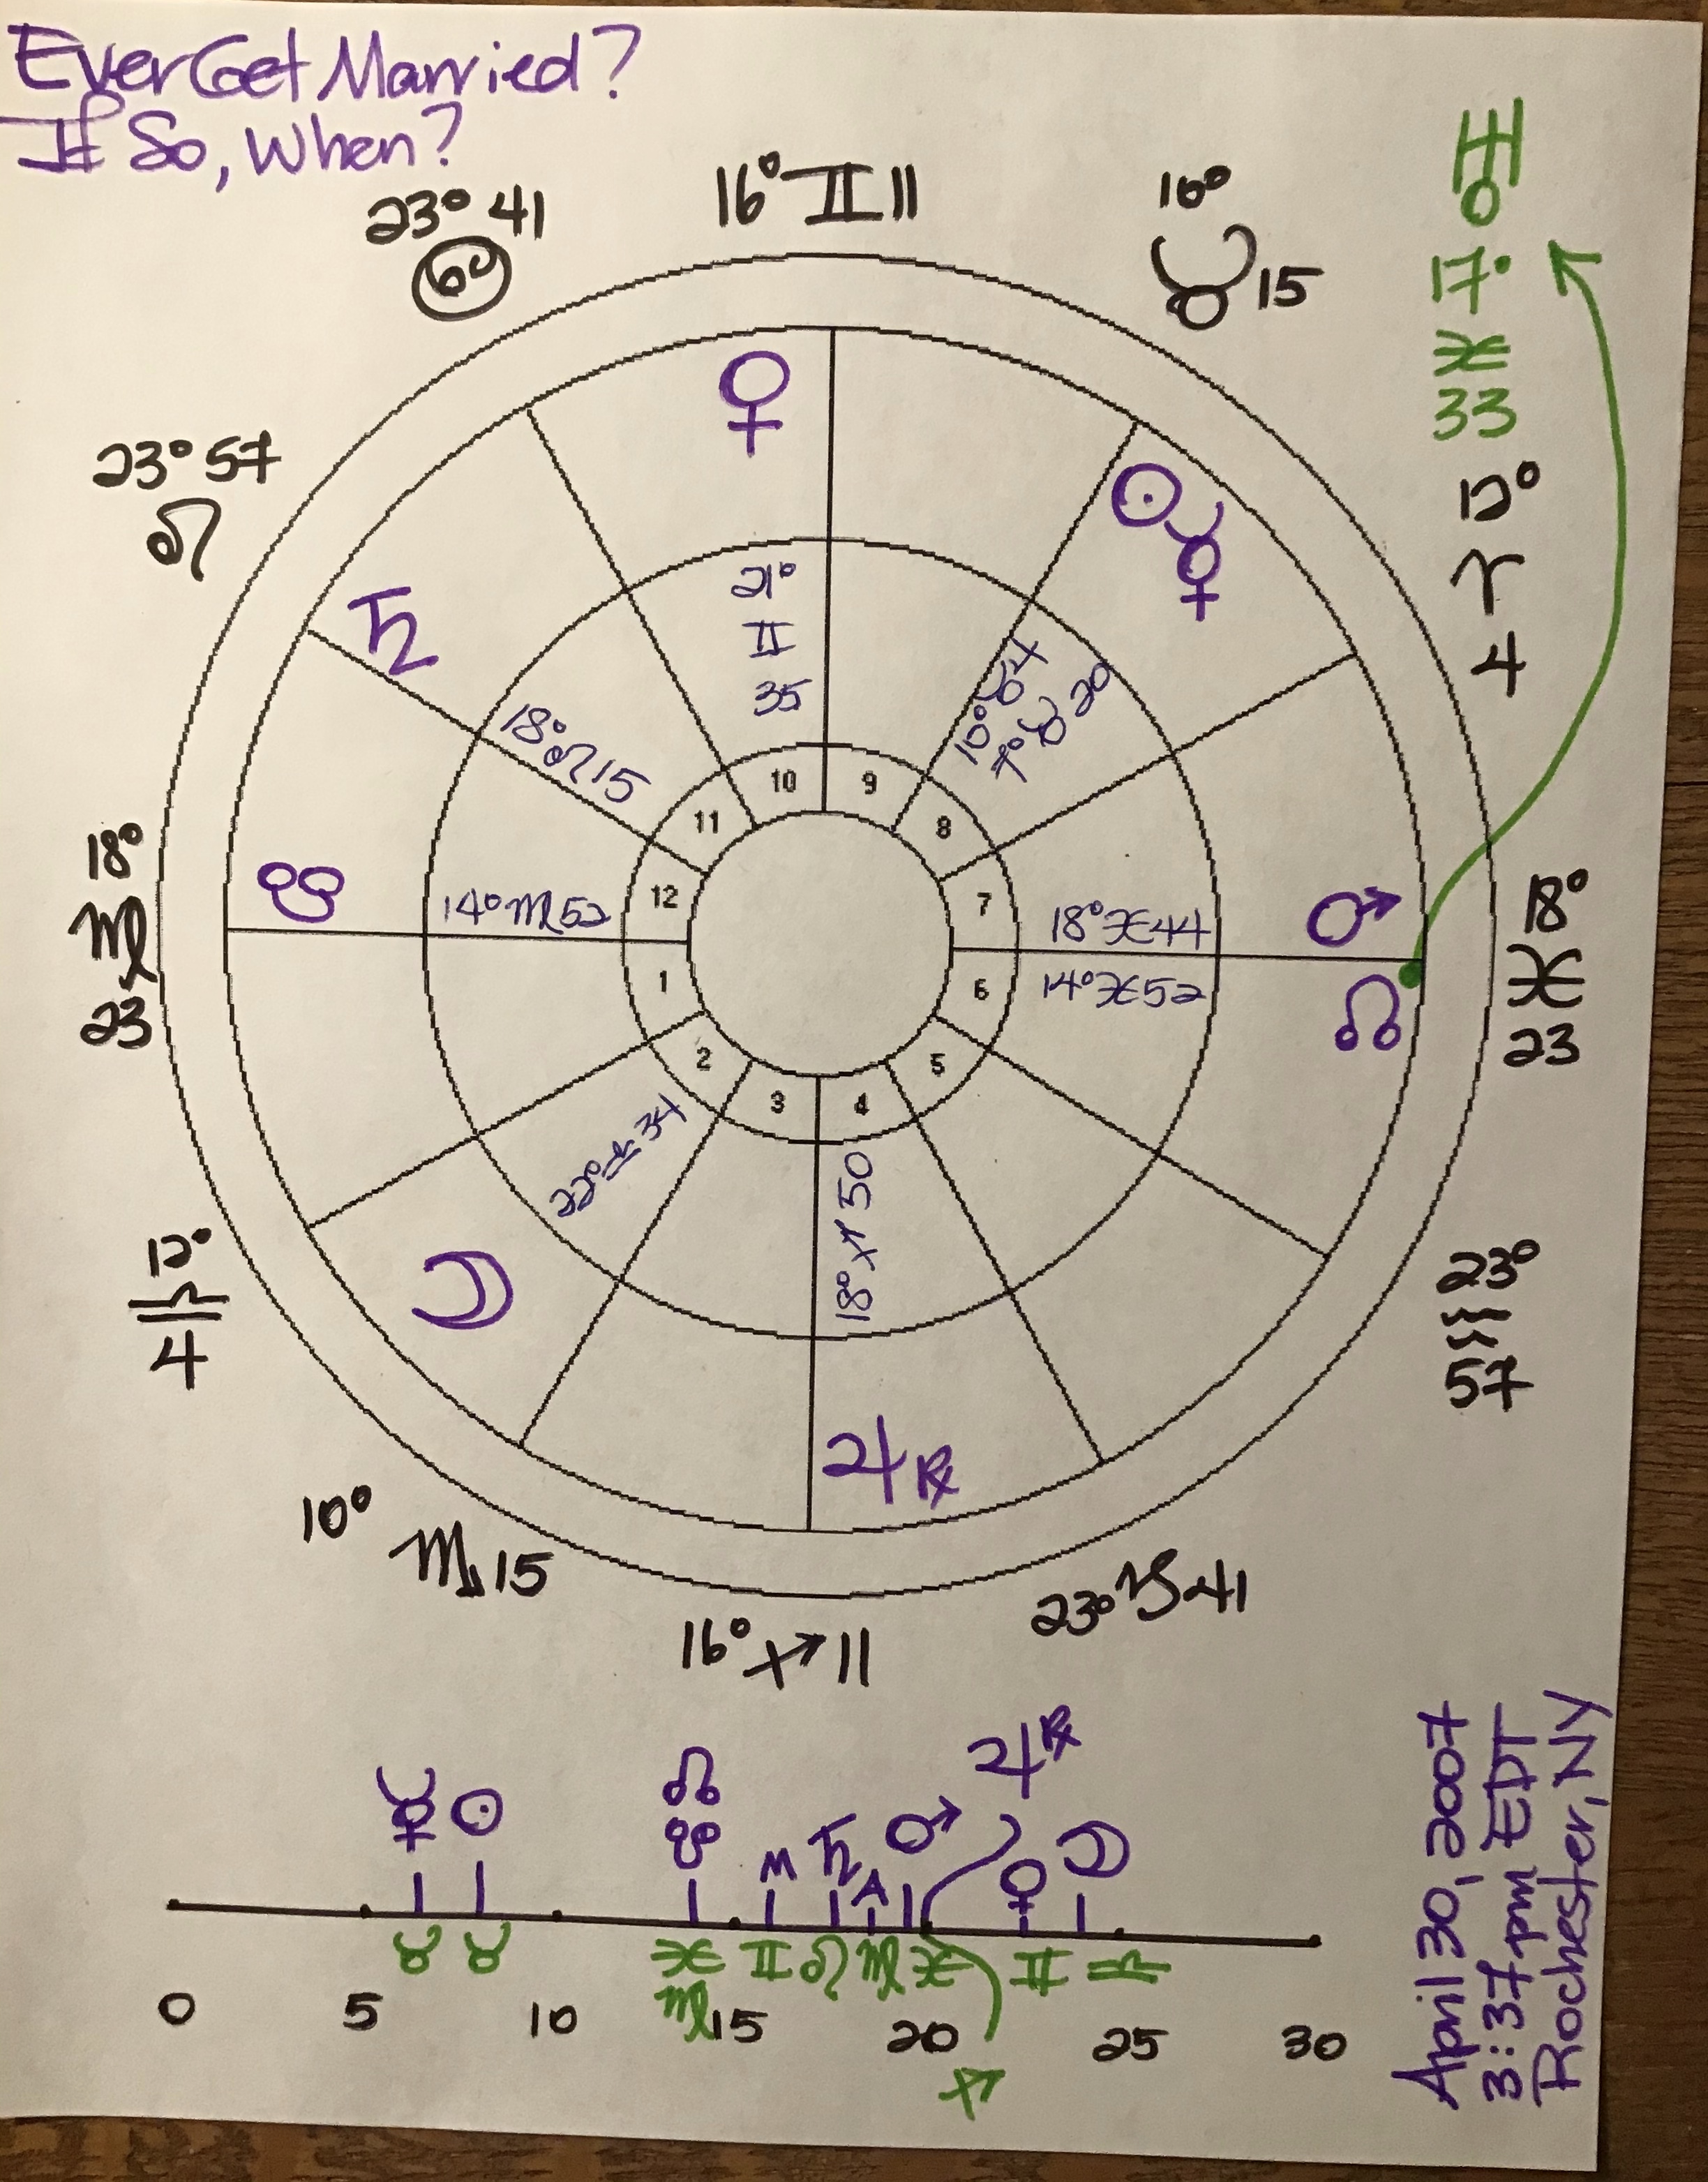 Ever Get Married?
If So, When?
23° 41
♋
16° ♊ 11
16°
♉ 15
♅
17°
♓
33
23° 57
♌
12°
♈
4
♀
21°
♊
35
☉
☿
10° ♉ 4
7° ♉ 20
♄
18° ♌ 15
18°
♍
23
☋
14° ♍ 52
18° ♓ 44
♂
14° ♓ 52
☊
18°
♓
23
10
9
11
8
12
7
1
6
2
5
3
4
12°
♎
4
☽
22° ♎ 34
18° ♐ 50
♃ ℞
23°
♒
57
10°
♏ 15
16° ♐ 11
23° ♑ 41
☿ ☉ ☊ ☋ M ♄ A ♂ ♃ ℞ ♀ ☽
♉ ♉ ♓ ♍ ♊ ♌ ♍ ♓ ♐ ♊ ♎
0 5 10 15 20 25 30
April 30, 2007
3:37 pm EDT
Rochester, NY